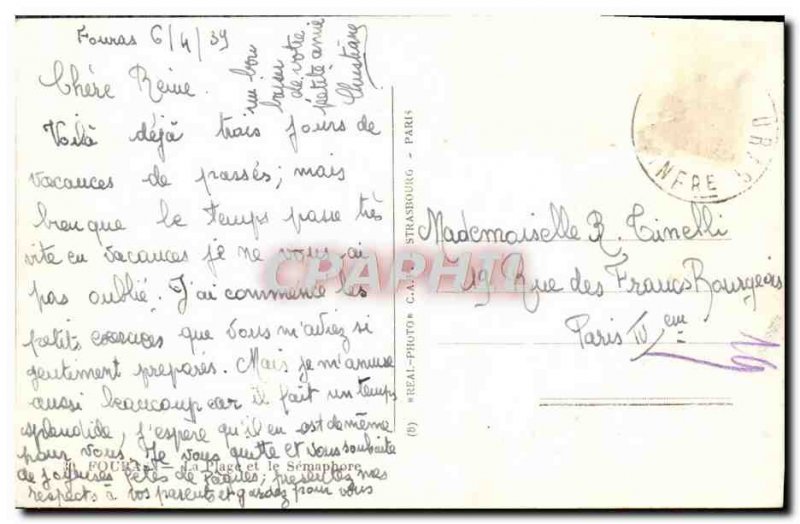 Fouras 6/4/39
Chère Reine.
Voilà déjà trois jours de
vacances de passés; mais
bien que le temps passe très
vite en vacances je ne vous ai
pas oublié. J'ai commencé les
petits exercices que vous m'aviez si
gentiment préparés. Mais je m'amuse
aussi beaucoup car il fait un temps
splendide, j'espère qu'il en est de même
pour vous. Je vous quitte et vous souhaite
de joyeuses fêtes de Pâques; présentez mes
respects à vos parents et gardez pour vous
un bon
baiser
de votre
petite amie
Christiane
FOURAS — La Plage et le Sémaphore
(8) "REAL-PHOTO" C.A.P. STRASBOURG - PARIS
CPAPHIL
INFRE
Mademoiselle R. Tinelli
19 Rue des Francs Bourgeois
Paris IV em